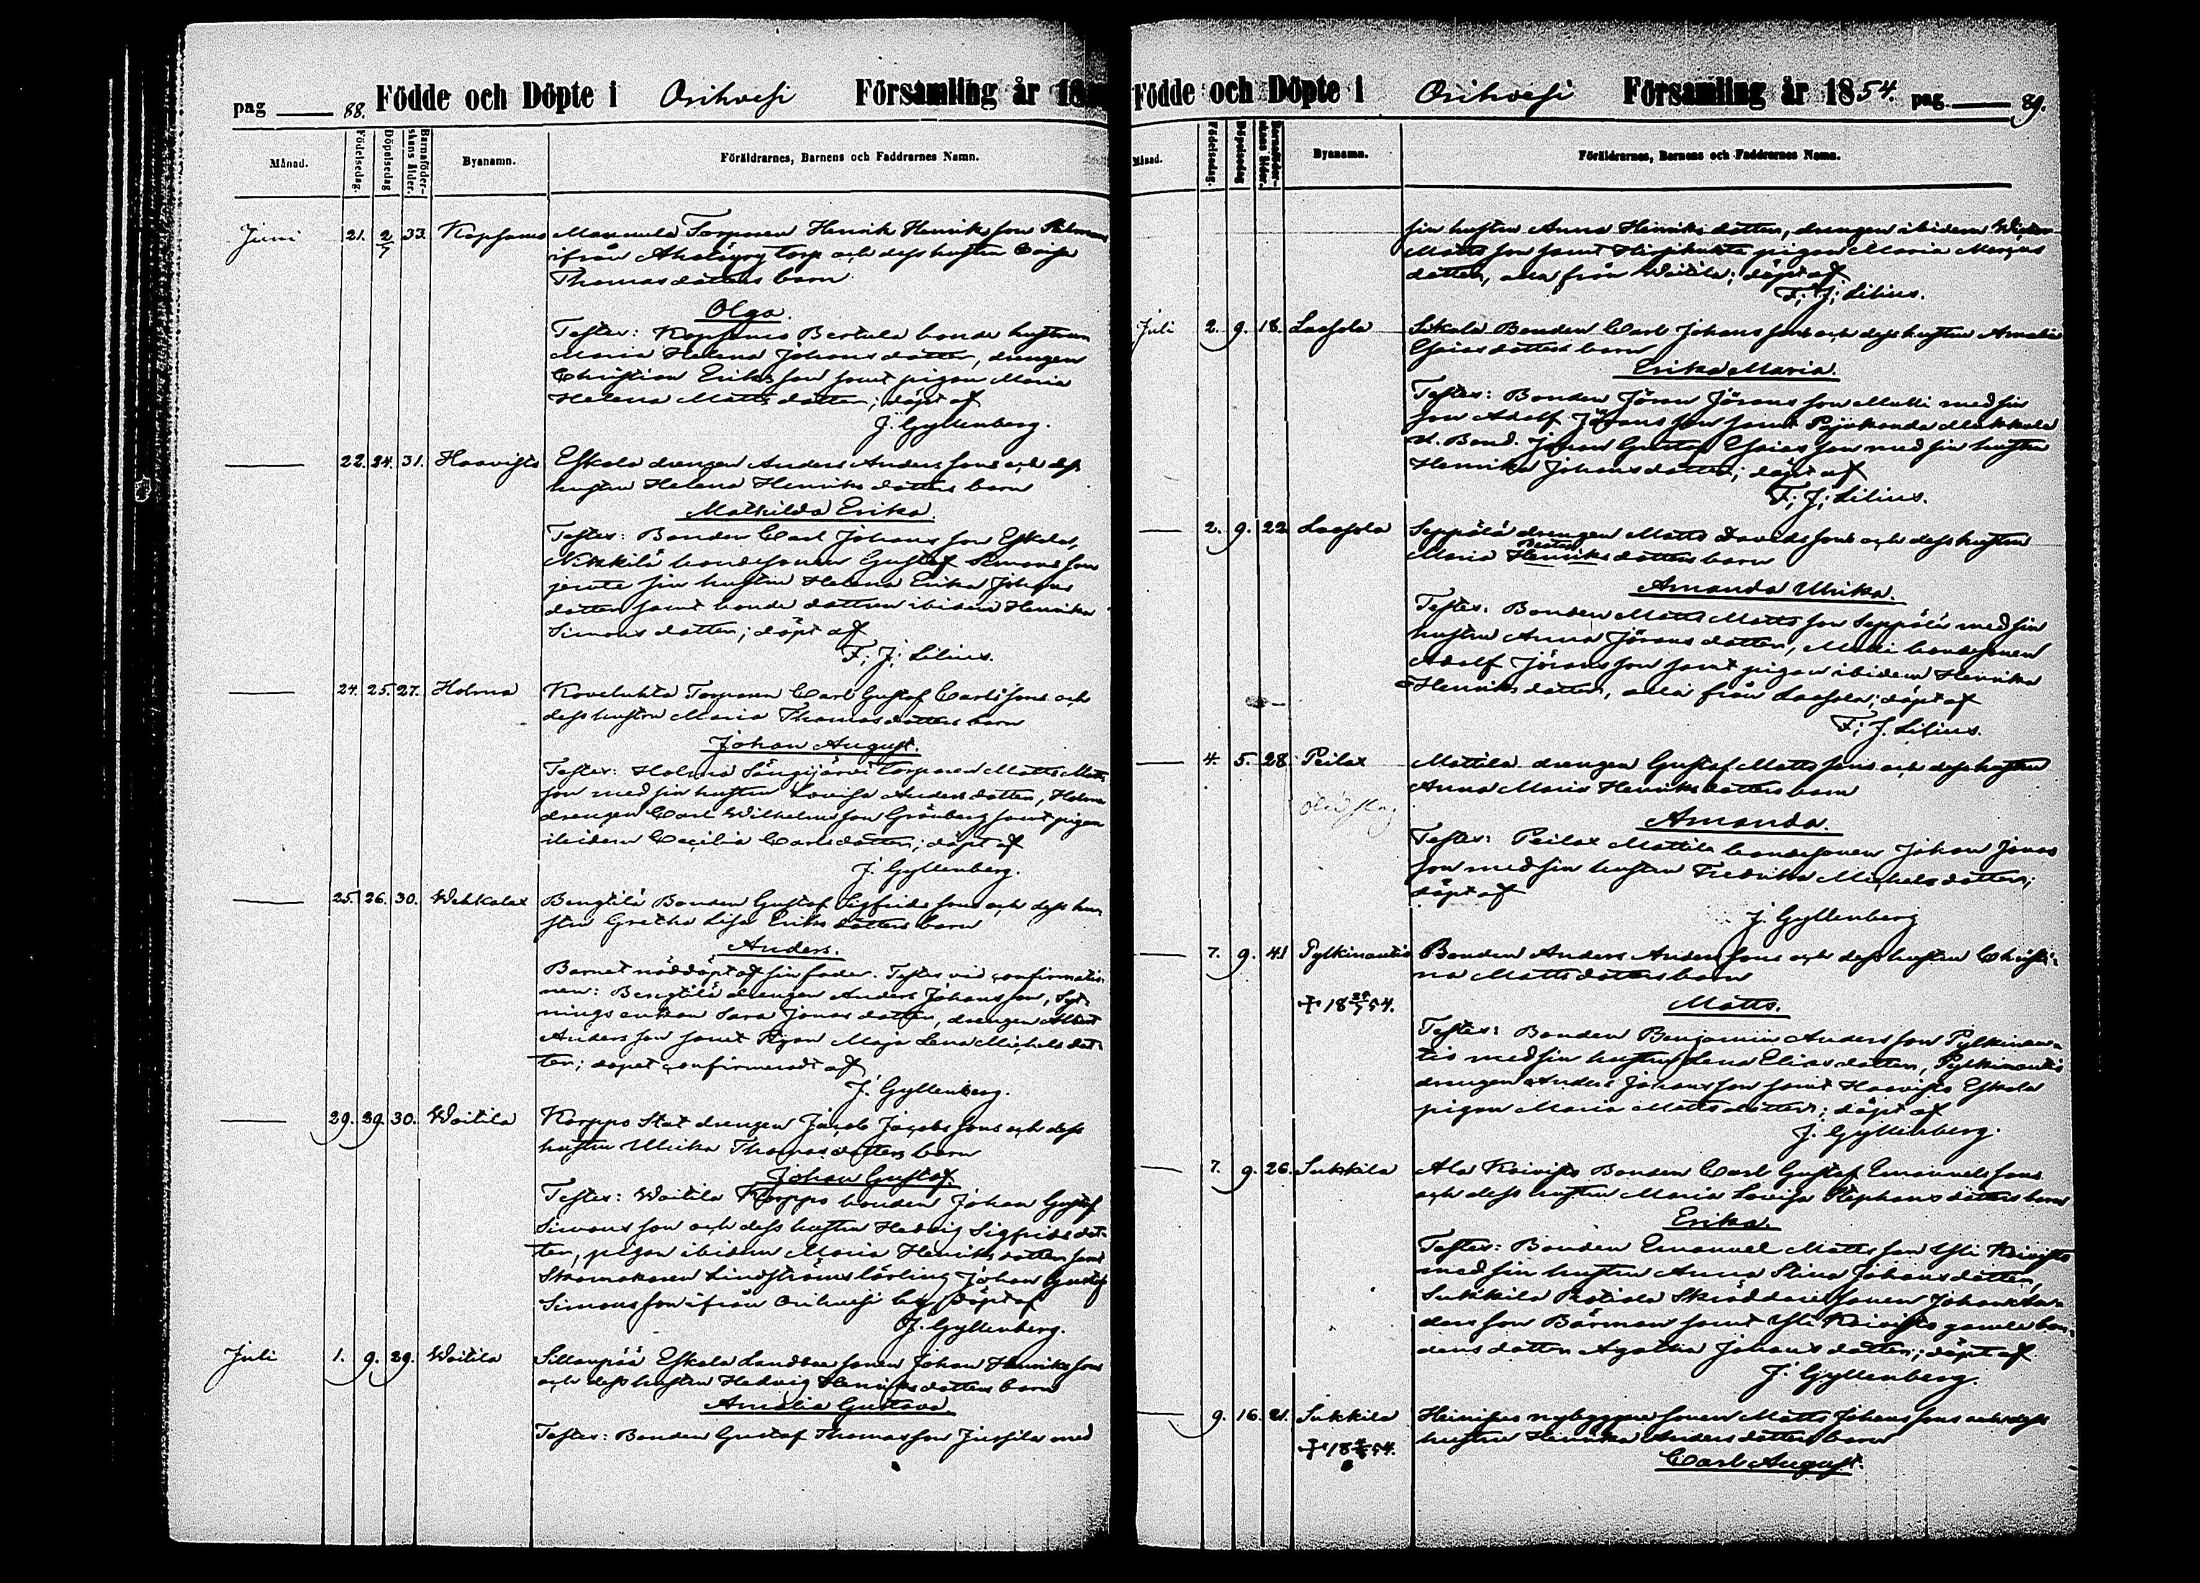 pag 88. Födde och Döpte i Orihvesi Församling år 18
Månad. Födelsedag. Döpelsedag Barnaföderskans ålder. Byanamn. Föräldrarnes, Barnens och Faddrarnes Namn.
Juni 21. 2/7 33. Kopsamo Maunula Torparen Henrik Henriksson
ifrån torp och dess hustru Caisa
Thomasdotters barn
Olga.
Testes: Kopsamo Bertula bonde hustrun
Maria Helena Johansdotter, drengen
Christian Eriksson samt pigan Maria
Helena Mattsdotter; döpt af
J. Gyllenberg.
22. 24. 31. Haavisto Eskola drengen Anders Anderssons och dess
hustru Helena Henriksdotters barn
Mathilda Erika.
Testes: Bonden Carl Johansson Eskola,
Nikkilä bondesonen Gustaf Simonsson
jemte sin hustru Helena Erika Johans
dotter samt bonde dottren ibidem Henrika
Simonsdotter; döpt af
F. J. Lilius.
24. 25. 27. Holma Kovelahti Torparen Carl Gustaf Carlssons och
dess hustru Maria Thomasdotters barn
Johan August.
Testes: Holma Torparen Matts Matts
son med sin hustru Lovisa Andersdotter, Holma
drengen Carl Wilhelmsson Grönberg samt pigan
ibidem Cecilia Carlsdotter; döpt af
J. Gyllenberg.
25. 26. 30. Wehkalax Bengtilä Bonden Gustaf Sigfridssons och dess hu-
stru Gretha Lisa Eriksdotters barn
Anders.
Barnet nöddöpt af sin fader. Testes vid confirmatio-
nen: Bengtilä drengen Anders Johansson, Syt-
nings enkan Sara Jonasdotter, drengen Albert
Andersson samt Pigan Maja Lena Michelsdot-
ter; dopet confirmeradt af
J. Gyllenberg.
29. 29. 30. Woitila Korppo Stat drengen Jacob Jacobssons och dess
hustru Ulrika Thomasdotters barn
Johan Gustaf.
Testes: Woitila Korppo bonden Johan Gustaf
Simonsson och dess hustru Hedvig Sigfridsdot-
ter, pigan ibidem Maria Henriksdotter samt
Skomakaren Lindströms lärling Johan Gustaf
Simonsson ifrån Orihvesi by; döpt af
J. Gyllenberg.
Juli 1. 9. 29. Woitila Sillanpää Eskola Landbondesonen Johan Henrikssons
och dess hustru Hedvig Henriksdotters barn
Amalia Gustava.
Testes: Bonden Gustaf Thomasson Jussila med
Födde och Döpte i Orihvesi Församling år 1854. pag 89.
Månad. Födelsedag. Döpelsedag Barnaföderskans ålder. Byanamn. Föräldrarnes, Barnens och Faddrarnes Namn.
sin hustru Anna Henriksdotter, drengen ibidem
Mattsson samt pigan Maria
dotter, alla från Woitila; döpt af
F. J. Lilius.
Juli 2. 9. 18. Laasola Bonden Carl Johanssons och dess hustru Amalia
Esaiasdotters barn
Erika Maria.
Testes: Bonden Jöran Jöransson Matti med sin
son Adolf Jöransson samt Pyökonda Makkula
Bond. Johan Gustaf Esaiasson med sin hustru
Henrika Johansdotter; döpt af
F. J. Lilius.
2. 9. 22 Laasola Seppälä drengen Matts Davidssons och dess hustru
Maria Henriksdotters barn
Amanda Ulrika.
Testes: Bonden Matts Mattsson Seppälä med sin
hustru Anna Jöransdotter, Matti bondesonen
Adolf Jöransson samt pigan ibidem Henrika
Henriksdotter, alla från Laasola; döpt af
F. J. Lilius.
4. 5. 28. Peilax Mattila drengen Gustaf Mattssons och dess hustru
Anna Maria Henriksdotters barn
Amanda.
Testes: Peilax Mattila bondesonen Johan Jonas
son med sin hustru Fredrika Michelsdotter;
döpt af
J. Gyllenberg
7. 9. 41 Pylkinautio Bonden Anders Anderssons och dess hustru Christi-
na Mattsdotters barn
Matts.
Testes: Bonden Benjamin Andersson Pylkinau-
tio med sin hustru Lena Eliasdotter, Pylkinautio
drengen Anders Johansson samt Haavisto Eskola
pigan Maria Mattsdotter; döpt af
J. Gyllenberg.
7. 9. 26. Sukkila Ala Keivisto Bonden Carl Gustaf Emanuelssons
och dess hustru Maria Lovisa Stephansdotters barn
Erika.
Testes: Bonden Emanuel Mattsson Yli Keivisto
med sin hustru Anna Stina Johansdotter,
Sukkila Skräddaresonen Johan An-
dersson Bärman samt Yli Keivisto gamle bon-
dens dotter Agatha Johansdotter; döpt af
J. Gyllenberg.
9. 16. 21. Sukkila nybyggaresonen Matts Johanssons och dess
hustru Henrika Andersdotters barn
Carl August.